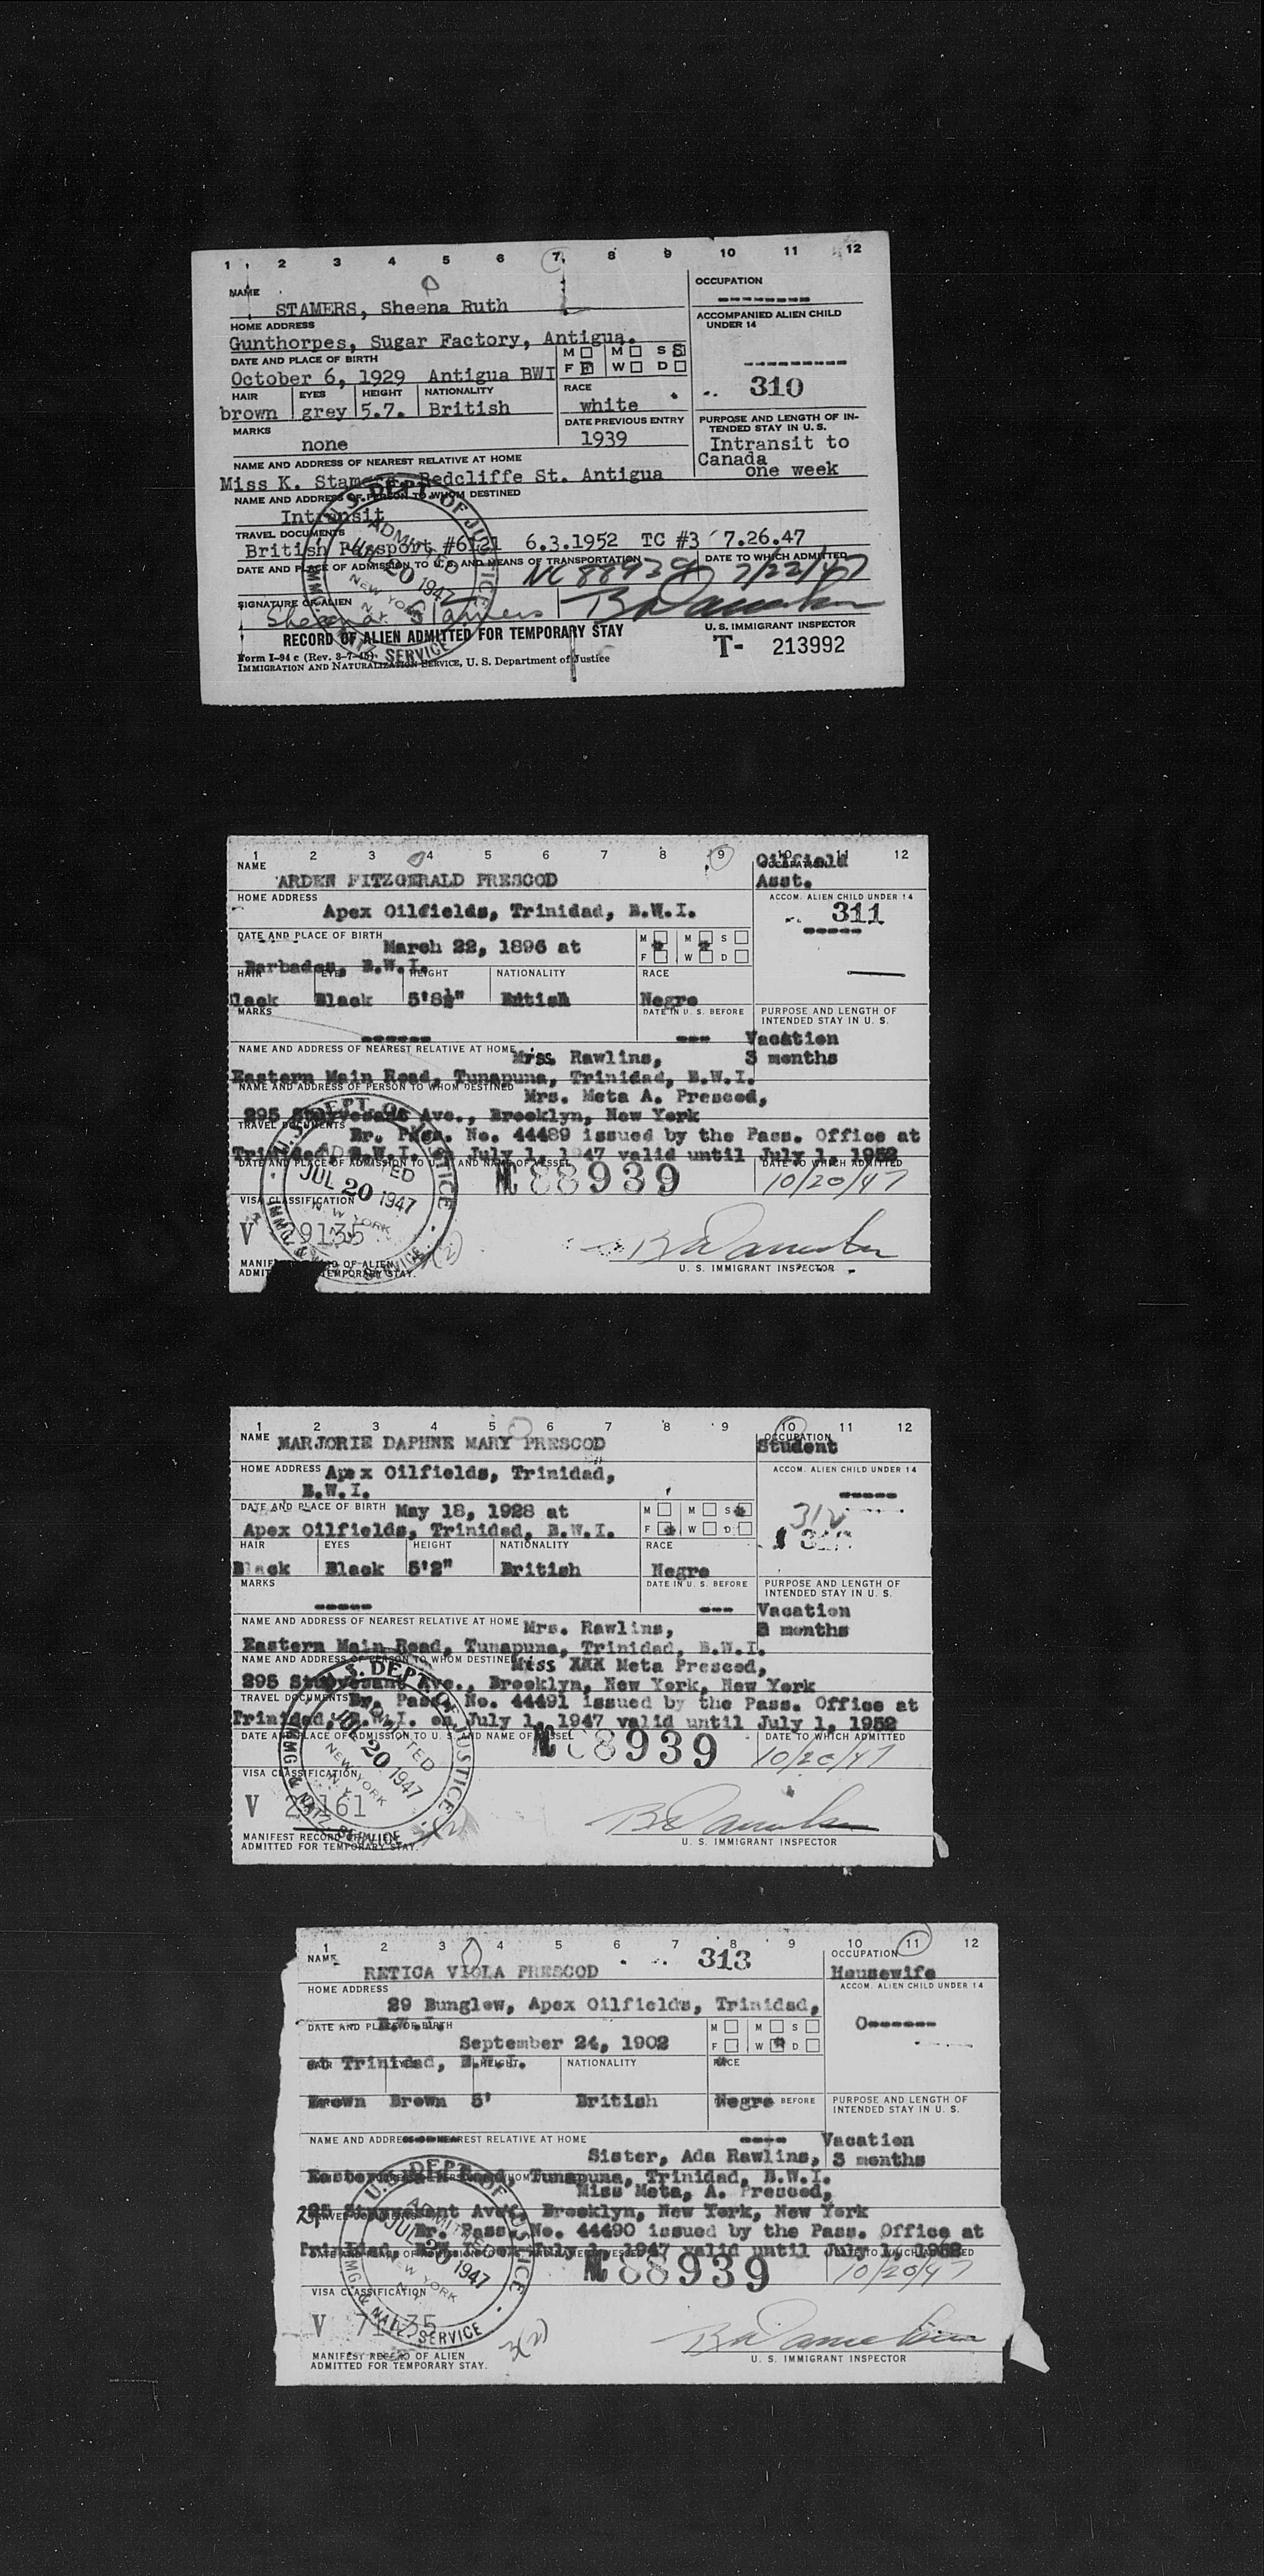 1 2 3 4 5 6 7 8 9 10 11 12
NAME
STAMERS, Sheena Ruth
OCCUPATION
--------
HOME ADDRESS
Gunthorpes, Sugar Factory, Antigua.
ACCOMPANIED ALIEN CHILD
UNDER 14
---------
310
DATE AND PLACE OF BIRTH
October 6, 1929 Antigua BWI
M M S S
F F W D
HAIR EYES HEIGHT NATIONALITY RACE
brown grey 5.7. British white
MARKS DATE PREVIOUS ENTRY
none 1939
PURPOSE AND LENGTH OF IN-
TENDED STAY IN U. S.
Intransit to
Canada
one week
NAME AND ADDRESS OF NEAREST RELATIVE AT HOME
Miss K. Stamers, Redcliffe St. Antigua
NAME AND ADDRESS OF PERSON TO WHOM DESTINED
Intransit
TRAVEL DOCUMENTS
British Passport #6121 6.3.1952 TC #3 7.26.47
DATE AND PLACE OF ADMISSION TO U. S. AND MEANS OF TRANSPORTATION DATE TO WHICH ADMITTED
NC 88939 7/22/47
U. S. DEPT. OF JUSTICE
ADMITTED
JUL 20 1947
NEW YORK
N.Y.
IMMG. & NATZ. SERVICE
SIGNATURE OF ALIEN
Sheena Stamers
RECORD OF ALIEN ADMITTED FOR TEMPORARY STAY
U. S. IMMIGRANT INSPECTOR
T- 213992
Form I-94 c (Rev. 3-7-45)
IMMIGRATION AND NATURALIZATION SERVICE, U. S. Department of Justice
1 2 3 4 5 6 7 8 9 10 11 12
NAME
ARDEN FITZGERALD PRESCOD
OCCUPATION
Oilfield
Asst.
HOME ADDRESS
Apex Oilfields, Trinidad, B.W.I.
ACCOM. ALIEN CHILD UNDER 14
311
-----
DATE AND PLACE OF BIRTH
March 22, 1896 at
Barbados, B.W.I.
M M S
F W D
HAIR EYES HEIGHT NATIONALITY RACE
lack Black 5'8½" British Negro
MARKS DATE IN U. S. BEFORE
------ ---
PURPOSE AND LENGTH OF
INTENDED STAY IN U. S.
Vacation
3 months
NAME AND ADDRESS OF NEAREST RELATIVE AT HOME
Miss Rawlins,
Eastern Main Road, Tunapuna, Trinidad, B.W.I.
NAME AND ADDRESS OF PERSON TO WHOM DESTINED
Mrs. Meta A. Prescod,
295 Stuyvesant Ave., Brooklyn, New York
TRAVEL DOCUMENTS
Br. Pass. No. 44489 issued by the Pass. Office at
Trinidad, B.W.I. on July 1, 1947 valid until July 1, 1952
DATE AND PLACE OF ADMISSION TO U. S. AND NAME OF VESSEL DATE TO WHICH ADMITTED
NC 88939 10/20/47
U. S. DEPT. OF JUSTICE
ADMITTED
JUL 20 1947
NEW YORK
N.Y.
IMMG. & NATZ. SERVICE
VISA CLASSIFICATION
V 29135
3(2)
MANIFEST RECORD OF ALIEN
ADMITTED FOR TEMPORARY STAY.
U. S. IMMIGRANT INSPECTOR
1 2 3 4 5 6 7 8 9 10 11 12
NAME MARJORIE DAPHNE MARY PRESCOD
OCCUPATION
Student
HOME ADDRESS Apex Oilfields, Trinidad,
B.W.I.
ACCOM. ALIEN CHILD UNDER 14
-----
312
DATE AND PLACE OF BIRTH May 18, 1928 at
Apex Oilfields, Trinidad, B.W.I.
M M S
F W D
HAIR EYES HEIGHT NATIONALITY RACE
Black Black 5'2" British Negro
MARKS DATE IN U. S. BEFORE
----- ---
PURPOSE AND LENGTH OF
INTENDED STAY IN U. S.
Vacation
3 months
NAME AND ADDRESS OF NEAREST RELATIVE AT HOME Mrs. Rawlins,
Eastern Main Road, Tunapuna, Trinidad, B.W.I.
NAME AND ADDRESS OF PERSON TO WHOM DESTINED Miss XXX Meta Prescod,
295 Stuyvesant Ave., Brooklyn, New York, New York
TRAVEL DOCUMENTS Br. Pass. No. 44491 issued by the Pass. Office at
Trinidad, B.W.I. on July 1, 1947 valid until July 1, 1952
DATE AND PLACE OF ADMISSION TO U. S. AND NAME OF VESSEL DATE TO WHICH ADMITTED
NC 88939 10/20/47
U. S. DEPT. OF JUSTICE
ADMITTED
JUL 20 1947
NEW YORK
N.Y.
IMMG. & NATZ. SERVICE
VISA CLASSIFICATION
MANIFEST RECORD OF ALIEN
ADMITTED FOR TEMPORARY STAY.
U. S. IMMIGRANT INSPECTOR
1 2 3 4 5 6 7 8 9 10 11 12
313
NAME
RETICA VIOLA PRESCOD
OCCUPATION
Housewife
HOME ADDRESS
29 Bunglow, Apex Oilfields, Trinidad,
B.W.I.
ACCOM. ALIEN CHILD UNDER 14
0------
DATE AND PLACE OF BIRTH
September 24, 1902
at Trinidad, B.W.I.
M M S
F W D
HAIR EYES HEIGHT NATIONALITY RACE
Brown Brown 5' British Negro
BEFORE
PURPOSE AND LENGTH OF
INTENDED STAY IN U. S.
Vacation
3 months
NAME AND ADDRESS OF NEAREST RELATIVE AT HOME
Sister, Ada Rawlins,
Eastern Main Road, Tunapuna, Trinidad, B.W.I.
Miss Meta, A. Prescod,
295 Stuyvesant Ave., Brooklyn, New York, New York
TRAVEL DOCUMENTS
Br. Pass. No. 44490 issued by the Pass. Office at
Trinidad, B.W.I. on July 1, 1947 valid until July 1, 1952
NC 88939 10/20/47
U. S. DEPT. OF JUSTICE
ADMITTED
JUL 20 1947
NEW YORK
N.Y.
IMMG. & NATZ. SERVICE
VISA CLASSIFICATION
3(2)
MANIFEST RECORD OF ALIEN
ADMITTED FOR TEMPORARY STAY.
U. S. IMMIGRANT INSPECTOR